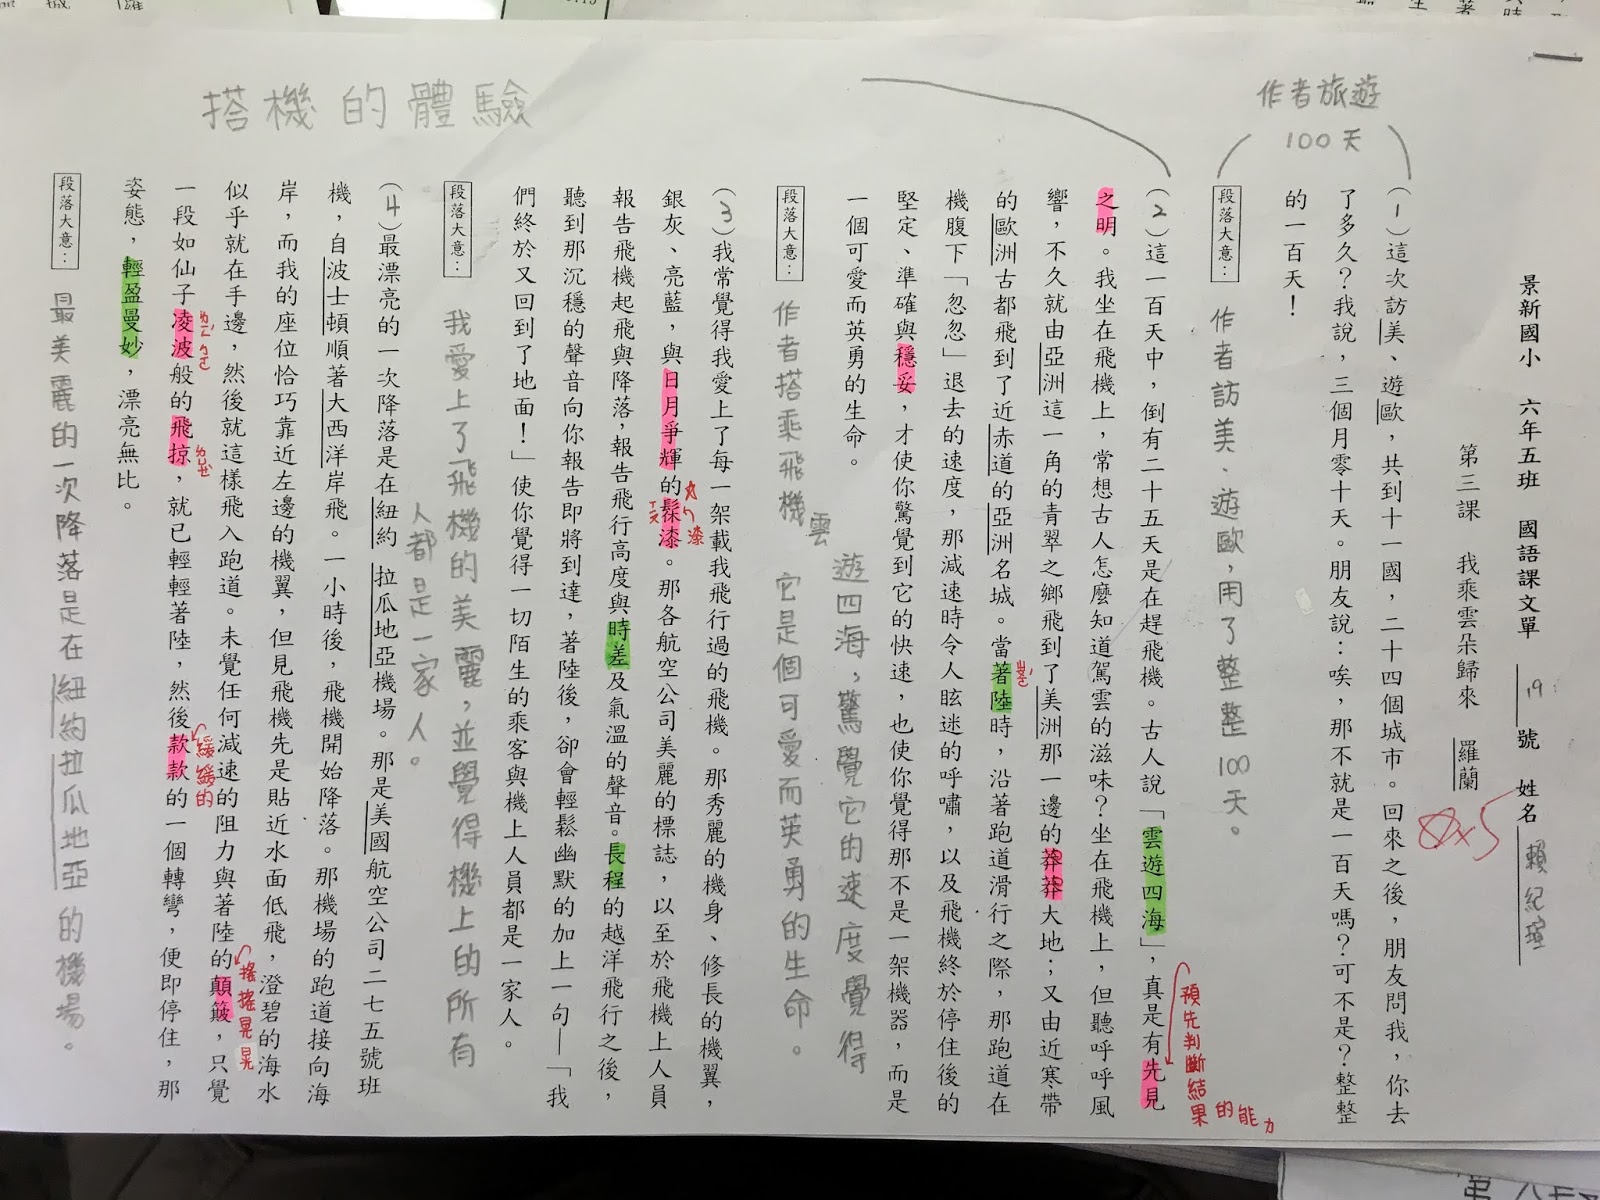 景新國小 六年五班 國語課文單 19號 姓名 賴紀瑄
第三課 我乘雲朵歸來 羅蘭
作者旅遊
100天
（1）這次訪美、遊歐，共到十一國，二十四個城市。回來之後，朋友問我，你去
了多久？我說，三個月零十天。朋友說：唉，那不就是一百天嗎？可不是？整整
的一百天！
段落大意：作者訪美、遊歐，用了整整100天。
搭機的體驗
（2）這一百天中，倒有二十五天是在趕飛機。古人說「雲遊四海」，真是有先見
預先判斷結
果的能力
之明。我坐在飛機上，常想古人怎麼知道駕雲的滋味？坐在飛機上，但聽呼呼風
響，不久就由亞洲這一角的青翠之鄉飛到了美洲那一邊的莽莽大地；又由近寒帶
的歐洲古都飛到了近赤道的亞洲名城。當著陸時，沿著跑道滑行之際，那跑道在
ㄓㄨㄛˊ
機腹下「忽忽」退去的速度，那減速時令人眩迷的呼嘯，以及飛機終於停住後的
堅定、準確與穩妥，才使你驚覺到它的快速，也使你覺得那不是一架機器，而是
一個可愛而英勇的生命。
段落大意：作者搭乘飛機雲遊四海，驚覺它的速度覺得
它是個可愛而英勇的生命。
（3）我常覺得我愛上了每一架載我飛行過的飛機。那秀麗的機身、修長的機翼，
銀灰、亮藍，與日月爭輝的髹漆。那各航空公司美麗的標誌，以至於飛機上人員
ㄒㄧㄡ
漆
報告飛機起飛與降落，報告飛行高度與時差及氣溫的聲音。長程的越洋飛行之後，
聽到那沉穩的聲音向你報告即將到達，著陸後，卻會輕鬆幽默的加上一句—「我
們終於又回到了地面！」使你覺得一切陌生的乘客與機上人員都是一家人。
段落大意：我愛上了飛機的美麗，並覺得機上的所有
人都是一家人。
（4）最漂亮的一次降落是在紐約 拉瓜地亞機場。那是美國航空公司二七五號班
機，自波士頓順著大西洋岸飛。一小時後，飛機開始降落。那機場的跑道接向海
岸，而我的座位恰巧靠近左邊的機翼，但見飛機先是貼近水面低飛，澄碧的海水
似乎就在手邊，然後就這樣飛入跑道。未覺任何減速的阻力與著陸的顛簸，只覺
搖搖晃晃
一段如仙子凌波般的飛掠，就已輕輕著陸，然後款款的一個轉彎，便即停住，那
ㄌㄧㄥˊ ㄅㄛ
ㄌㄩㄝˋ
緩緩的
姿態，輕盈曼妙，漂亮無比。
段落大意：最美麗的一次降落是在紐約拉瓜地亞的機場。